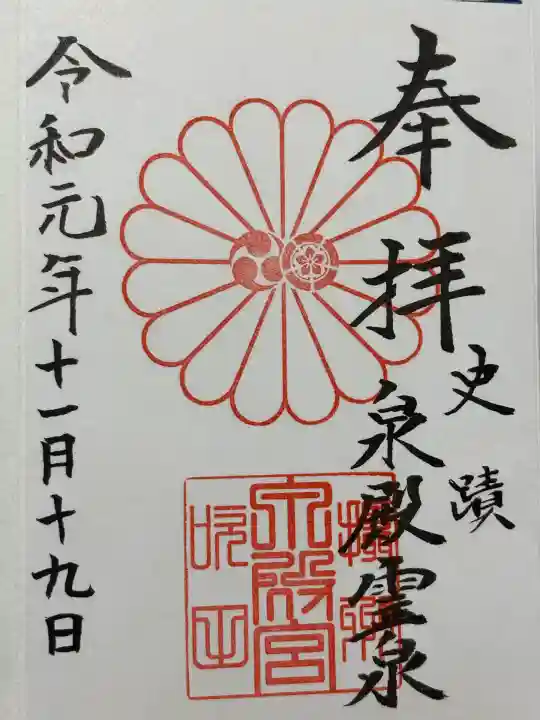 奉拝
史蹟
泉殿霊泉
令和元年十一月十九日
泉殿宮